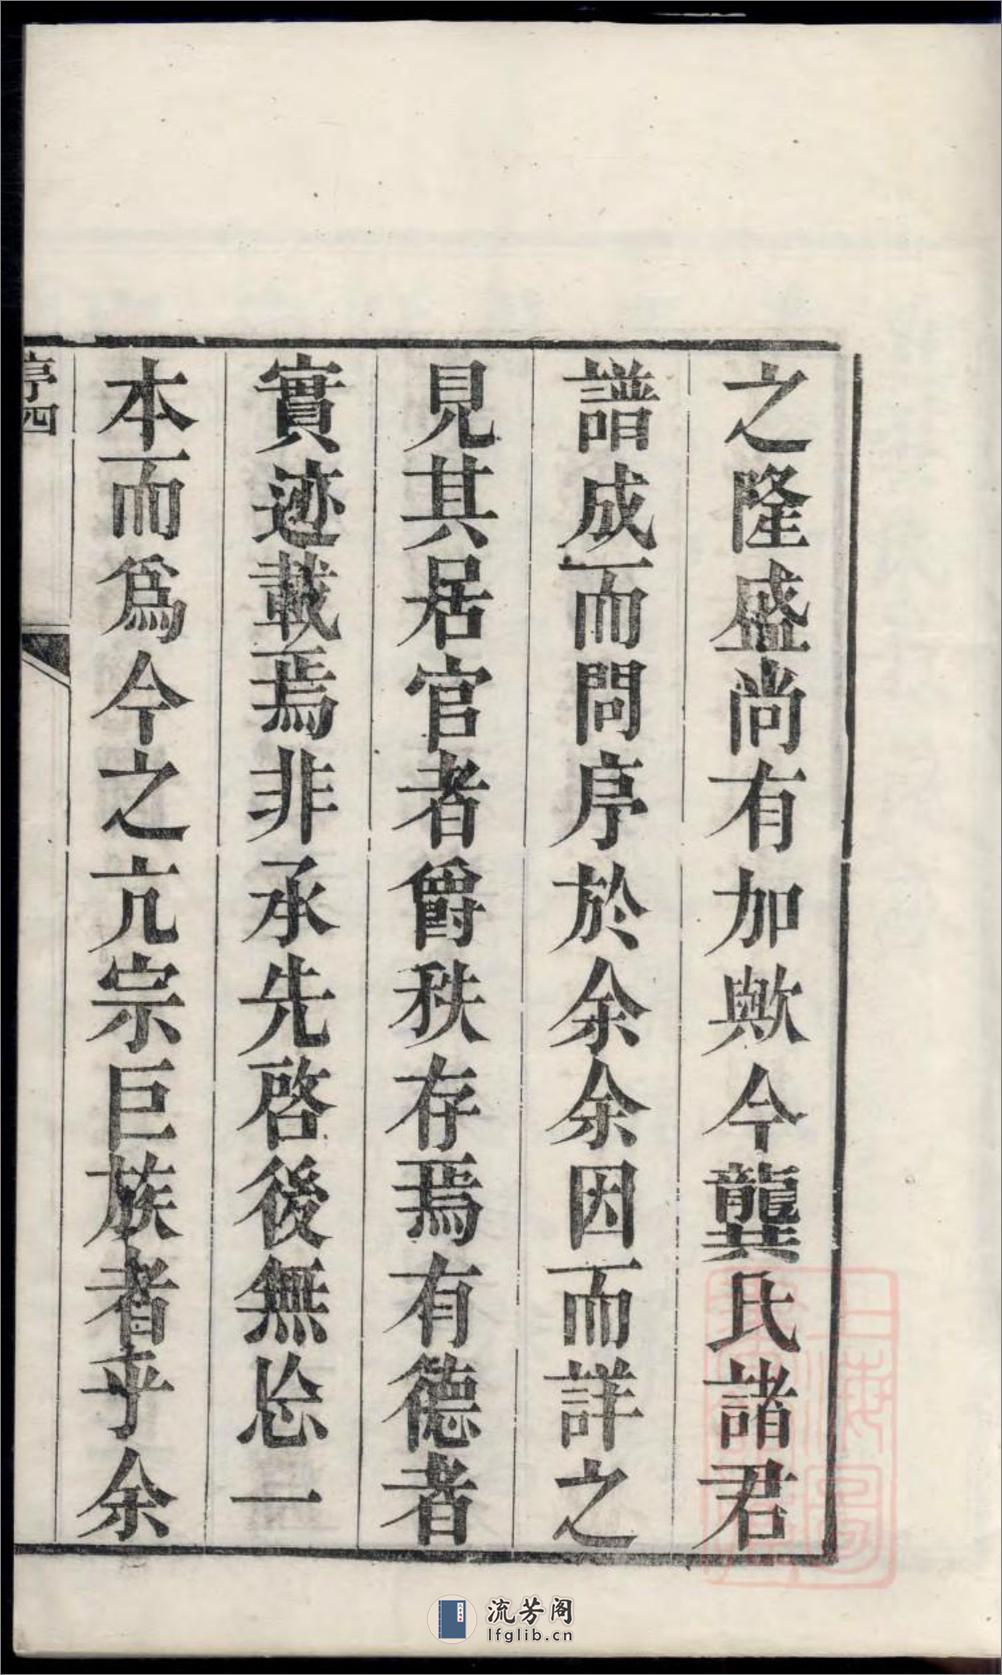 之隆盛尚有加歟今龔氏諸君
譜成而問序於余余因而詳之
見其居官者爵秩存焉有德者
實迹載焉非承先啓後無忝一
本而爲今之亢宗巨族者乎余
序四
流芳阁
lfglib.cn